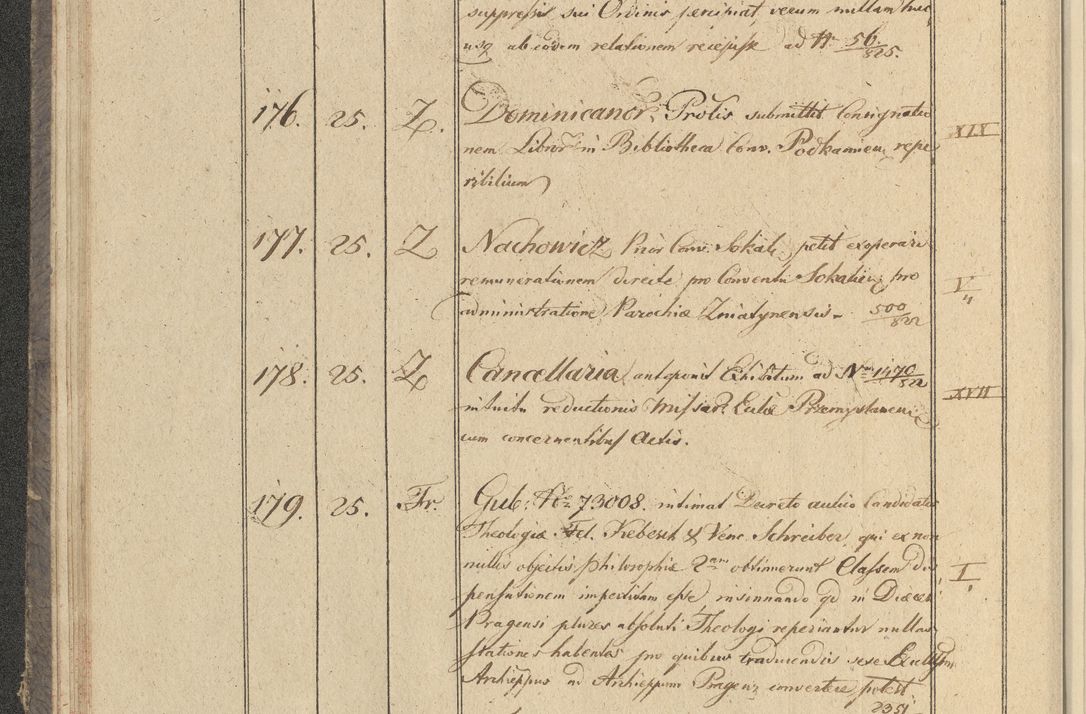 suppressis sui Ordinis percipiat verum nullam huc
usq ab eodem relationem recepisse ad N 56/825.
176. 25. Z. Dominicanor. Prolis submittit Consignatio
nem Libror in Bibliotheca Conv. Podkamien repe XIX
ribilium
177. 25. Z Nachowicz Prior Conv. Sokal. petit exoperari
remunerationem directe pro Conventu Sokalien pro V
administratione Parochiæ Zniatynensis. 500/822
178. 25. Z Cancellaria anteponit Exhibitum ad Nrm 1470/822
intuitu reductionis Missar. Eccliæ Przemyslanen XVII
cum concernentibus Actis.
179. 25. Fr. Gub. Nro 73008. intimat Decreto aulico Candidatis
Theologiæ Fel. & Venc. Schreiber, qui ex non
nullis objectis philosophiæ 2am obtinuerunt Classem dis I
pensationem impertitam esse, insinuando qd in Diœcesi
Pragensi plures absoluti Theologi reperiantur nullas
stationes habentes pro quibus traducendis sese Excellssm
Archieppus ad Archieppum Pragenz convertere potest.
2351